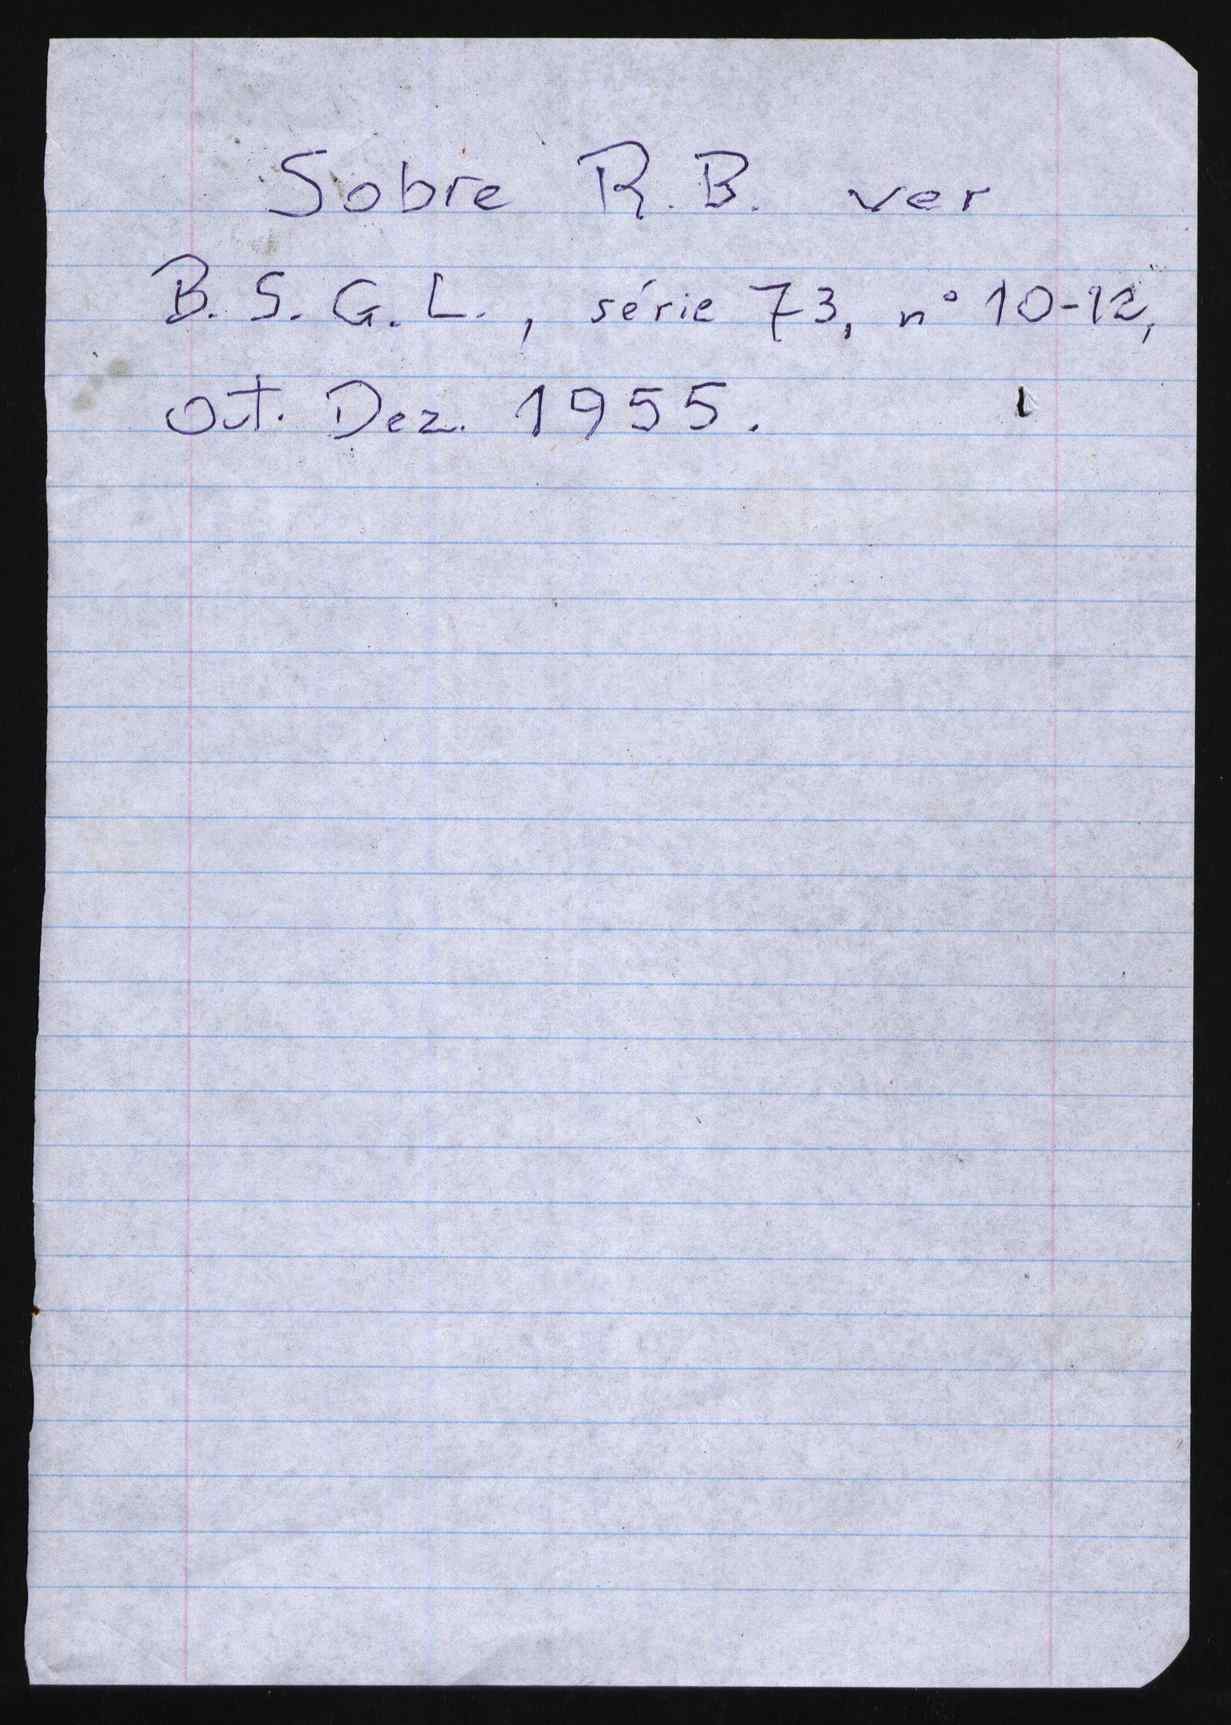 Sobre R. B. ver
B. S. G. L., série 73, nº 10-12,
Out. Dez. 1955.